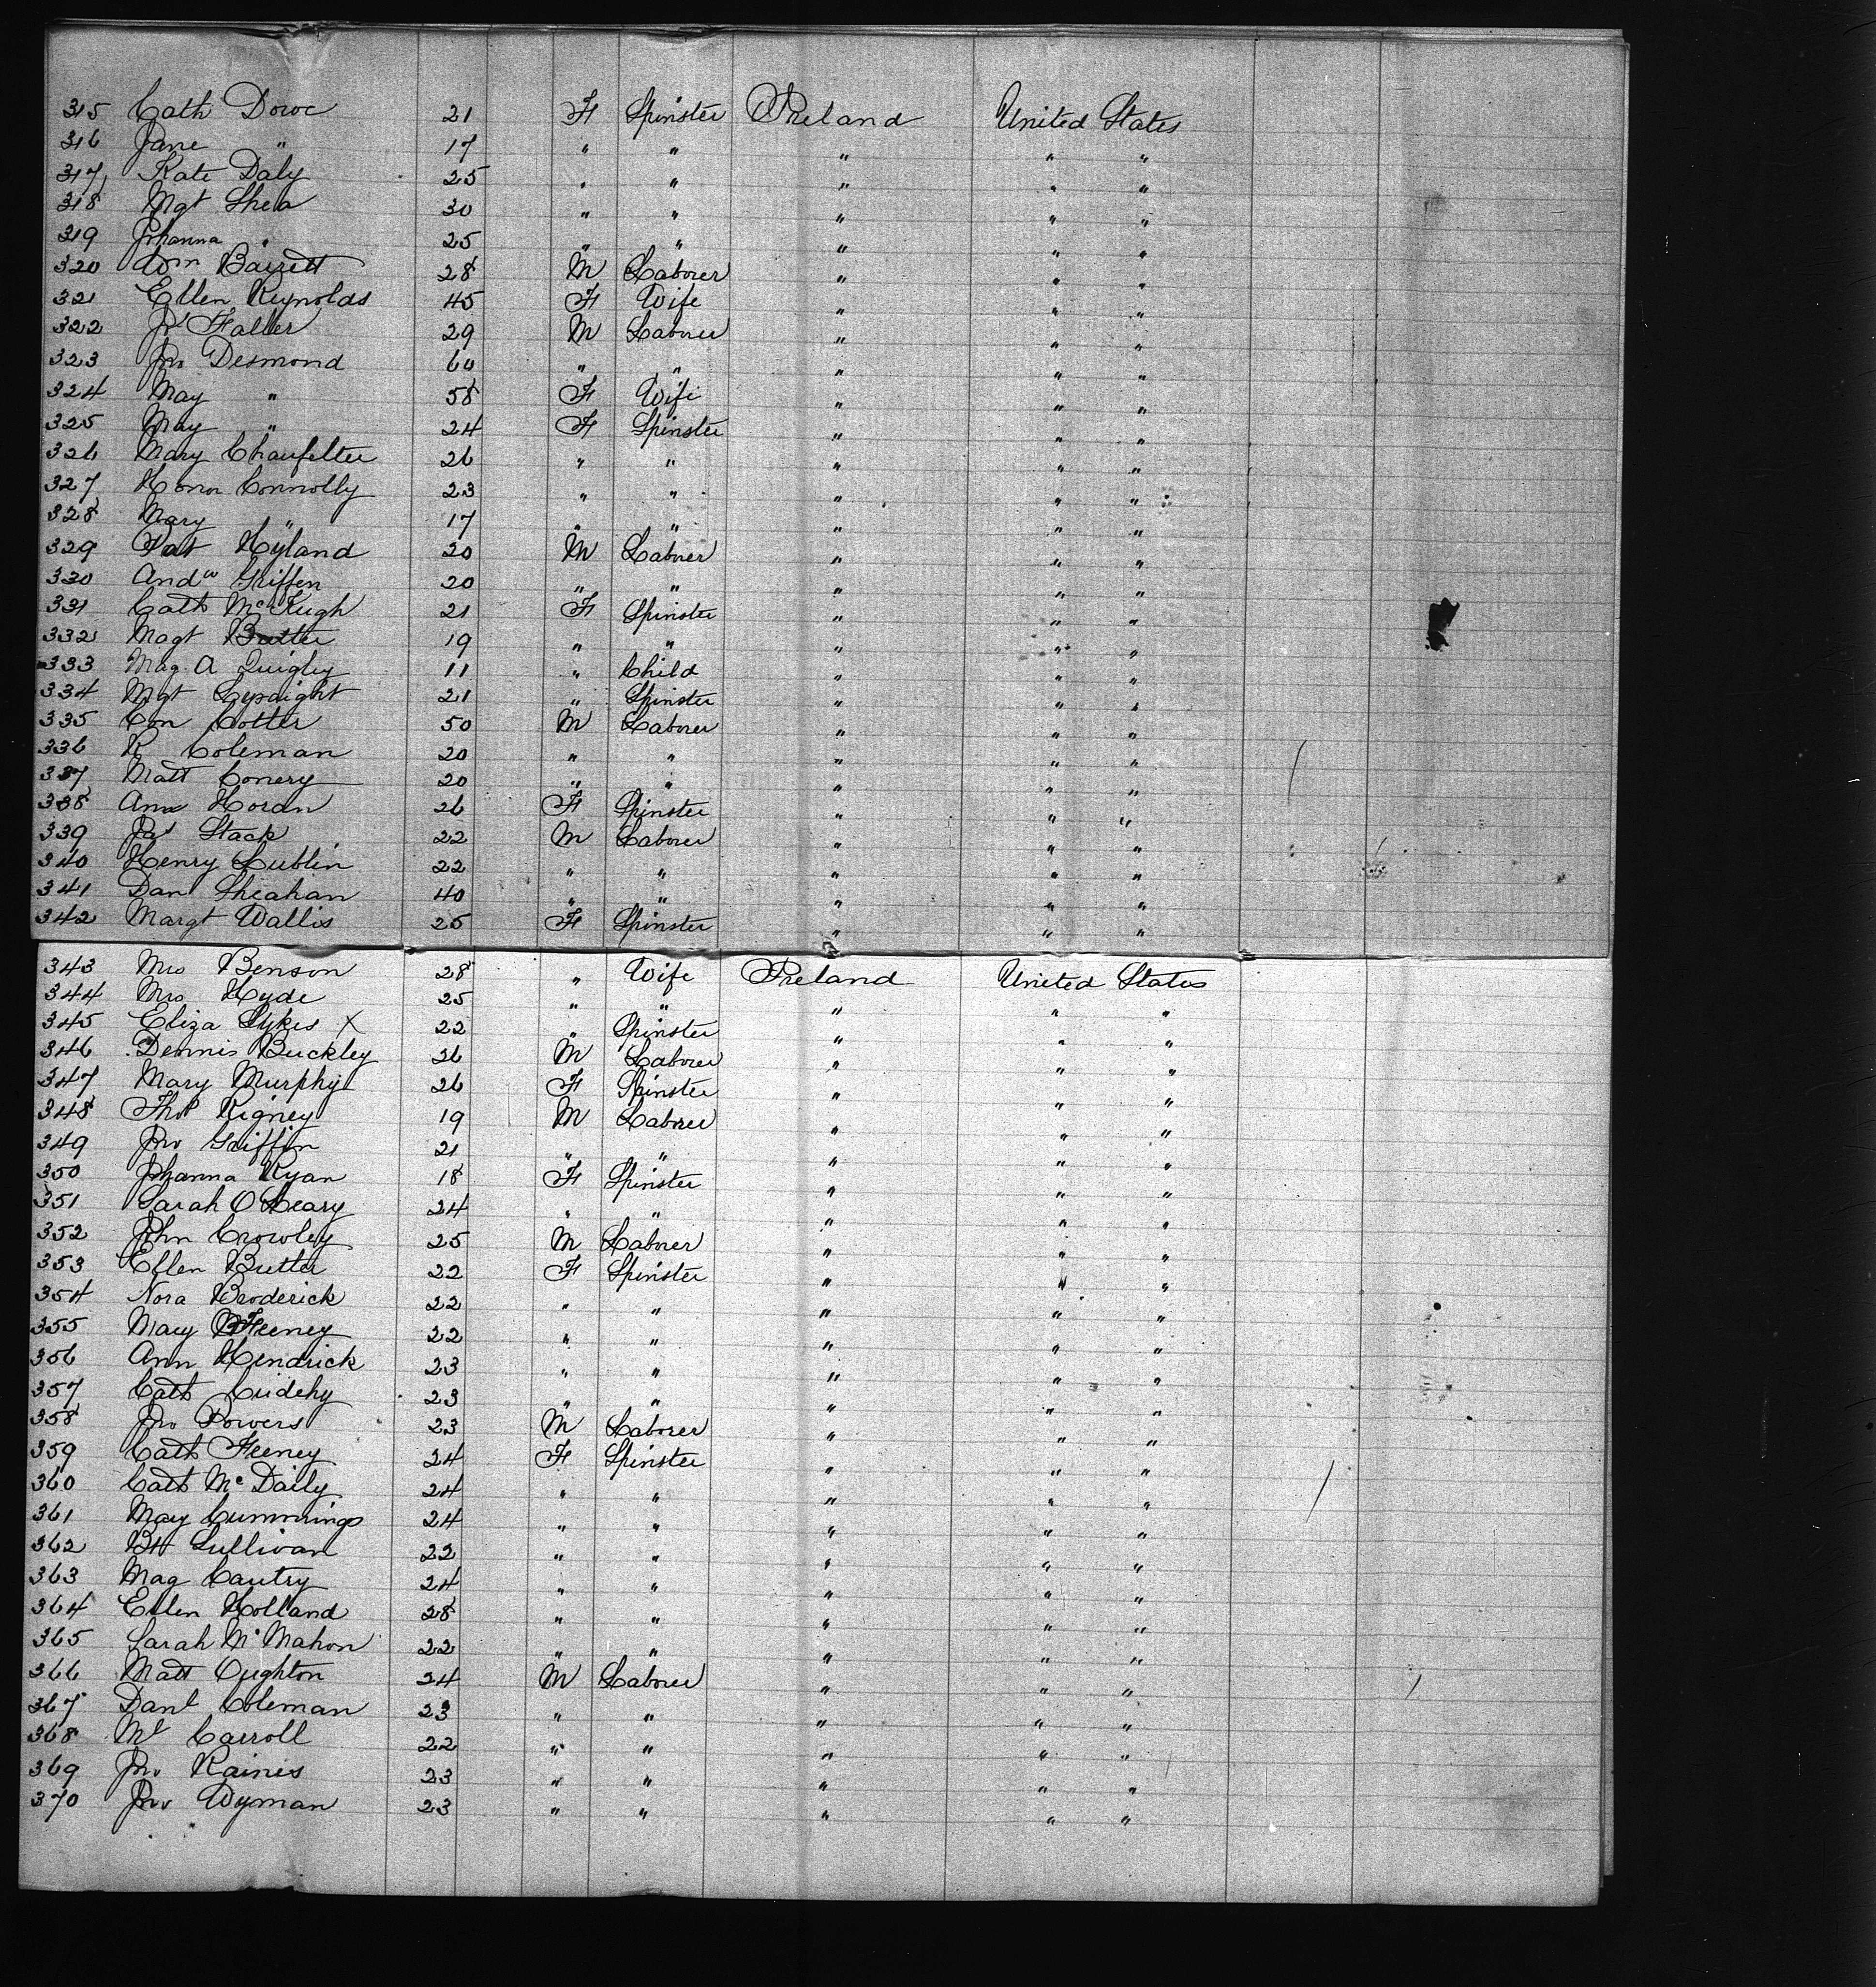 315 Cath Dowe 21 F Spinster Ireland United States
316 Jane " 17 " " " " "
317 Kate Daly 25 " " " " "
318 Mgt Shea 30 " " " " "
319 Johanna " 25 " " " " "
320 Wm Barrett 28 M Laborer " " "
321 Ellen Reynolds 45 F Wife " " "
322 Js Faller 29 M Laborer " " "
323 Jno Desmond 60 " " " " "
324 May " 58 F Wife " " "
325 May " 24 F Spinster " " "
326 Mary 26 " " " " "
327 Honor Connolly 23 " " " " "
328 Mary " 17 " " " " "
329 Pat Hyland 20 M Laborer " " "
330 Andw Griffen 20 " " " " "
331 Cath McHugh 21 F Spinster " " "
332 Magt Butler 19 " " " " "
333 Mag A Quigley 11 " Child " " "
334 Mgt Lysaight 21 " Spinster " " "
335 Con Cotter 50 M Laborer " " "
336 R Coleman 20 " " " " "
337 Matt Conery 20 " " " " "
338 Ann Horan 26 F Spinster " " "
339 Jas Stack 22 M Laborer " " "
340 Henry Lublin 22 " " " " "
341 Dan Sheahan 40 " " " " "
342 Margt Wallis 25 F Spinster " " "
343 Mrs Benson 28 " Wife Ireland United States
344 Mrs Hyde 25 " " " " "
345 Eliza Sykes X 22 " Spinster " " "
346 Dennis Buckley 26 M Laborer " " "
347 Mary Murphy 26 F Spinster " " "
348 Thos Rigney 19 M Laborer " " "
349 Jno Griffin 21 " " " " "
350 Johanna Ryan 18 F Spinster " " "
351 Sarah O'Leary 24 " " " " "
352 John Crowley 25 M Laborer " " "
353 Ellen Butler 22 F Spinster " " "
354 Nora Broderick 22 " " " " "
355 Mary Feeney 22 " " " " "
356 Ann Hendrick 23 " " " " "
357 Cath Cudehy 23 " " " " "
358 Jno Powers 23 M Laborer " " "
359 Cath Feeney 24 F Spinster " " "
360 Cath Mc Daily 24 " " " " "
361 May Cummings 24 " " " " "
362 Bt Sullivan 22 " " " " "
363 Mag Cautry 24 " " " " "
364 Ellen Holland 28 " " " " "
365 Sarah Mc Mahon 22 " " " " "
366 Matt Oughton 24 M Laborer " " "
367 Danl Coleman 23 " " " " "
368 Ml Carroll 22 " " " " "
369 Jno Raines 23 " " " " "
370 Jno Wyman 23 " " " " "